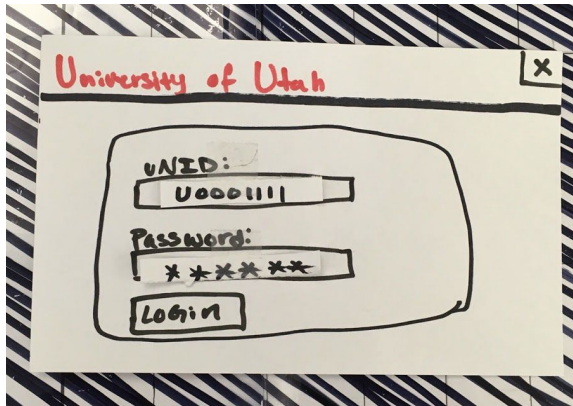 University of Utah
X
uNID:
U0001111
Password:
******
LOGin